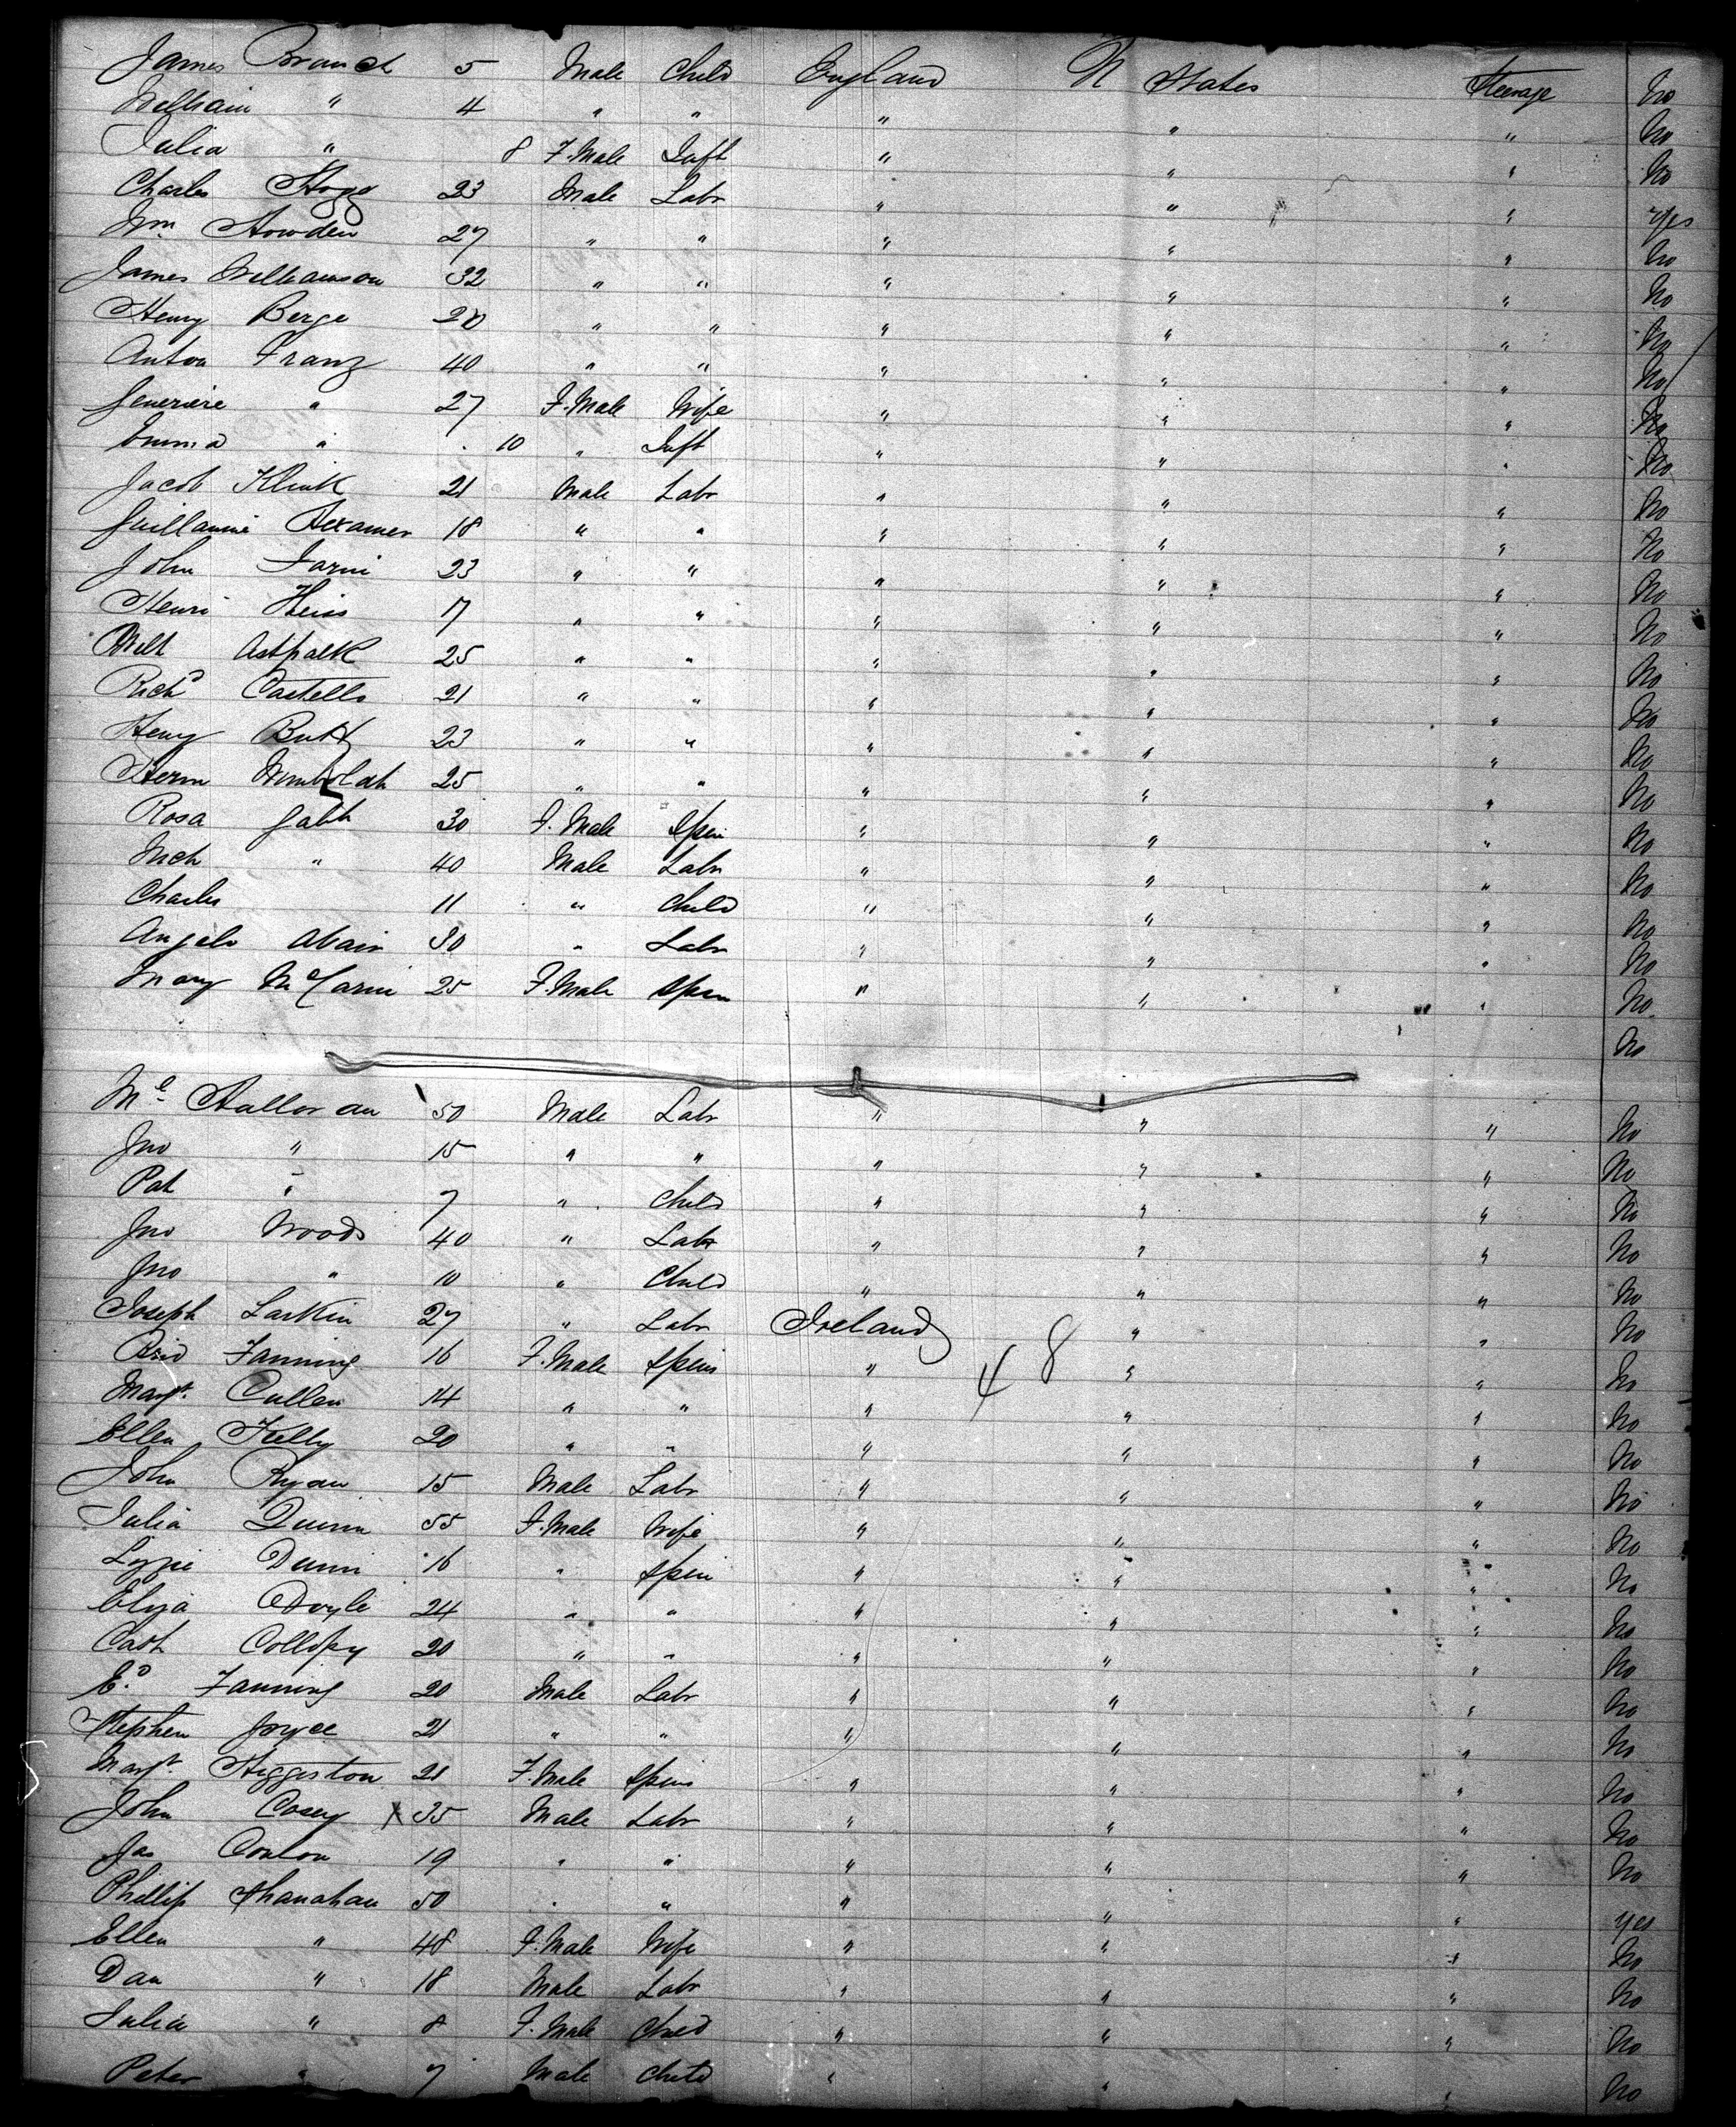 James Branch 5 Male Child England U States Steerage No
William " 4 " " " " " No
Julia " 8 F.Male Inft " " " No
Charles Stogg 23 Male Labr " " " Yes
Wm Howden 27 " " " " " No
James Williamson 32 " " " " " No
Henry Berge 20 " " " " " No
Anton Franz 40 " " " " " No
" 27 F.Male Wife " " " No
Emma " 10 " Inft " " " No
Jacob Klink 21 Male Labr " " " No
Guillaume Hexamer 18 " " " " " No
John 23 " " " " " No
Henri Heiss 17 " " " " " No
25 " " " " " No
Richd Castello 21 " " " " " No
Henry Butt 23 " " " " " No
Herm 25 " " " " " No
Rosa Gabh 30 F.Male Spin " " " No
Mich " 40 Male Labr " " " No
Charles 11 " Child " " " No
Angelo 30 " Labr " " " No
Mary 25 F.Male Spin " " " No
No
Ml Halloran 50 Male Labr " " " No
Jno " 15 " " " " " No
Pat " 7 " Child " " " No
Jno Woods 40 " Labr " " " No
Jno " 10 " Child " " " No
Joseph Larkin 27 " Labr Ireland " " No
48
Brid Fanning 16 F.Male Spins " " " No
Margt. Cullen 14 " " " " " No
Ellen Kelly 20 " " " " " No
John Ryan 15 Male Labr " " " No
Julia Quinn 55 F.Male Wife " " " No
Lizzie Dunn 16 " Spin " " " No
Eliza Doyle 24 " " " " " No
Cath Collopy 20 " " " " " No
Ed. Fanning 20 Male Labr " " " No
Stephen Joyce 21 " " " " " No
Margt. Higgiston 21 F.Male Spins " " " No
John Casey X 35 Male Labr " " " No
Jas Conlon 19 " " " " " No
Phillip Shanahan 50 " " " " " Yes
Ellen " 48 F.Male Wife " " " No
Dan " 18 Male Labr " " " No
Julia " 8 F.Male Child " " " No
Peter " 7 Male Child " " " No